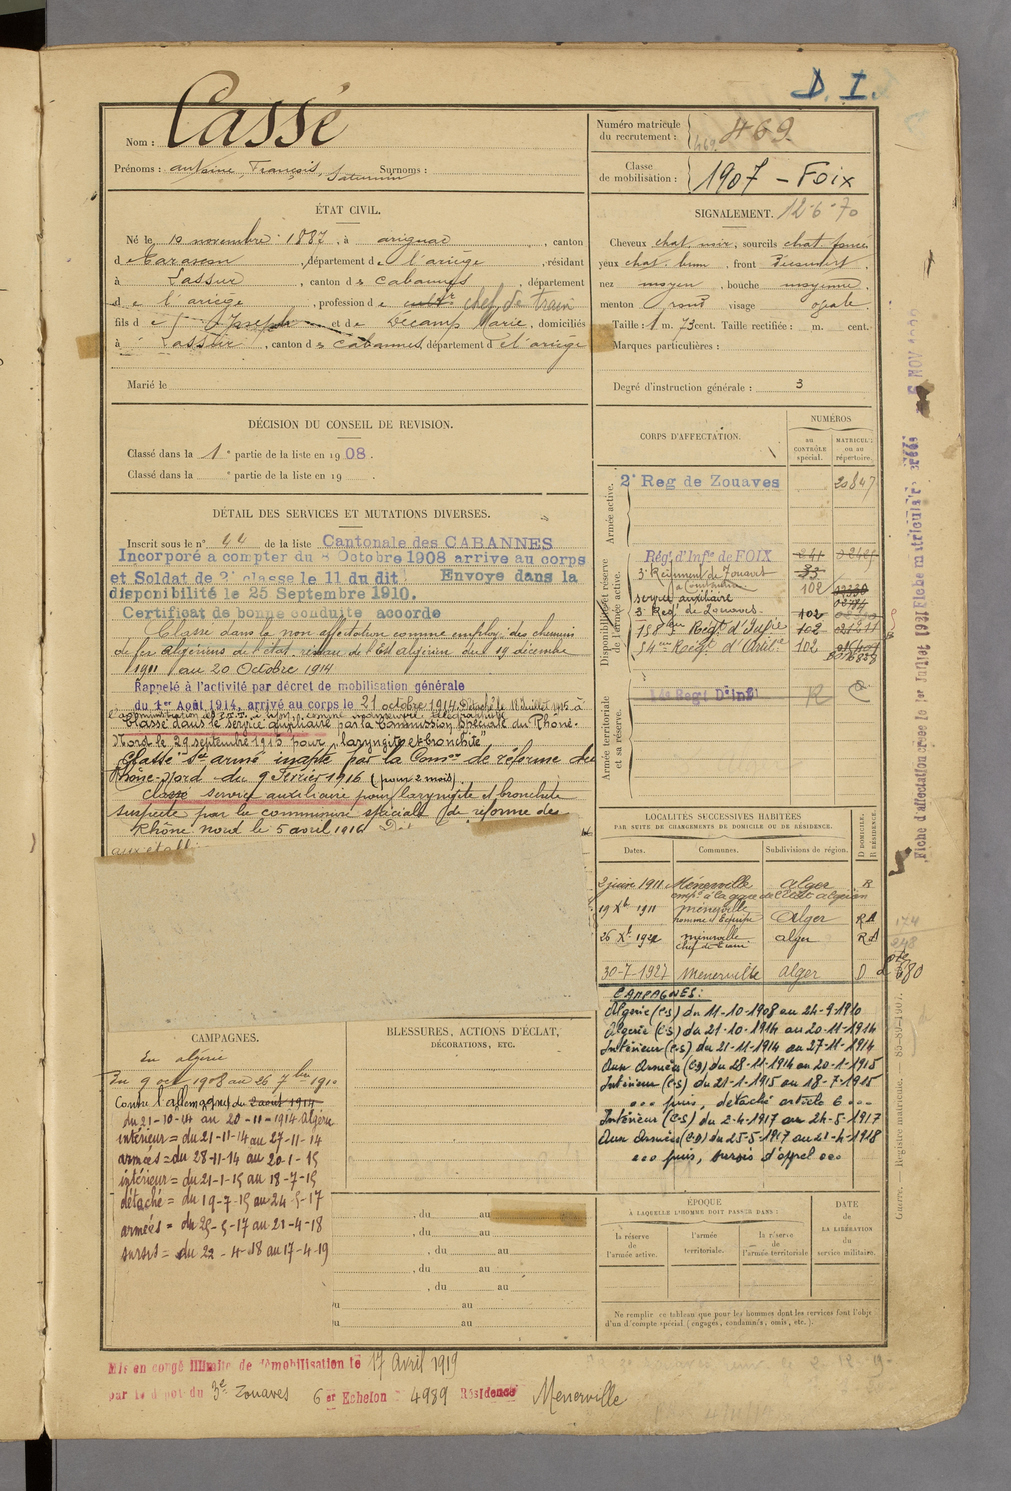 D. I.
Nom : Cassé
Prénoms : antoine, François, Saturnin Surnoms :
ÉTAT CIVIL.
Né le 10 novembre 1887, à arignac, canton
de Tarascon, département de l'ariège, résidant
à Lassur, canton des Cabannes, département
de l'ariège, profession de chef de train
fils de Joseph et de Décamp Marie, domiciliés
à Lassur, canton des Cabannes, département de l'ariège
Marié le
Numéro matricule du recrutement : 469. 469
Classe de mobilisation : 1907 – Foix
SIGNALEMENT. 12-6-70
Cheveux chat. noir, sourcils chat. foncé
yeux chat. brun, front
nez moyen, bouche moyenne,
menton rond visage ovale.
Taille : 1 m. 73 cent. Taille rectifiée : m. cent.
Marques particulières :
Degré d'instruction générale : 3
DÉCISION DU CONSEIL DE REVISION.
Classé dans la 1e partie de la liste en 1908.
Classé dans la e partie de la liste en 19 .
CORPS D'AFFECTATION.
NUMÉROS
au CONTRÔLE spécial.
MATRICULE ou au répertoire.
Armée active.
2e Reg de Zouaves 20847
Disponibilité et réserve de l'armée active.
Régt d'Infie de FOIX 241
3e Régiment de Zouaves 33
102
service auxiliaire
3e Regt de Zouaves. 102
158e Régt d'Infie 102
54me Regt d'Artie 102
Armée territoriale et sa réserve.
14e Regt D'Inf
DÉTAIL DES SERVICES ET MUTATIONS DIVERSES.
Inscrit sous le n° 44 de la liste Cantonale des CABANNES
Incorporé a compter du 8 Octobre 1908 arrive au corps
et Soldat de 2e classe le 11 du dit. Envoye dans la
disponibilité le 25 Septembre 1910.
Certificat de bonne conduite accorde
Classé dans la non affectation comme employé des chemins
de fer algériens de l'état réseau de l'Est algérien du 19 décembre
1911 au 20 Octobre 1914
Rappelé à l'activité par décret de mobilisation générale
du 1er Août 1914, arrivé au corps le 21 octobre 1914. Détaché le 18 juillet 1915 à
Classé dans le service auxiliaire par la Commission spéciale du Rhône-
Nord le 29 septembre 1915 pour "laryngite et bronchite"
Classé Sce armé inapte par la Comon de réforme du
Rhône-Nord du 9 Février 1916 (pour 2 mois)
Classé service auxiliaire pour laryngite et bronchite
suspecte par la commission spéciale de réforme du
Rhône nord le 5 avril 1916
LOCALITÉS SUCCESSIVES HABITÉES
PAR SUITE DE CHANGEMENTS DE DOMICILE OU DE RÉSIDENCE.
Dates. Communes. Subdivisions de région. D DOMICILE. R RÉSIDENCE.
2 juin 1911 Ménerville Alger R
empé à la gare de l'état algérien
19 Xb 1911 Ménerville Alger R
homme d'équipe
26 Xb 1922 Ménerville alger R
chef de train
30-7-1927 Menerville Alger D
CAMPAGNES :
Algérie (C-S) du 11-10-1908 au 24-9-1910
Algérie (C-S) du 21-10-1914 au 20-11-1914
Intérieur (C-S) du 21-11-1914 au 27-11-1914
Aux Armées (C-D) du 28-11-1914 au 20-1-1915
Intérieur (C-S) du 21-1-1915 au 18-7-1915
... puis, détaché article 6 ...
Intérieur (C-S) du 2-4-1917 au 24-5-1917
Aux Armées (C-D) du 25-5-1917 au 21-4-1918
... puis, sursis d'appel ...
CAMPAGNES.
En algérie
Du 9 oct 1908 au 26 7bre 1910
Contre l'allemagne du 2 août 1914
du 21-10-14 au 20-11-1914 Algérie
intérieur = du 21-11-14 au 27-11-14
armées = du 28-11-14 au 20-1-15
intérieur = du 21-1-15 au 18-7-15
détaché = du 19-7-15 au 24-5-17
armées = du 25-5-17 au 21-4-18
sursis = du 22-4-18 au 17-4-19
BLESSURES, ACTIONS D'ÉCLAT,
DÉCORATIONS, ETC.
, du au
, du au
, du au
, du au
, du au
du au
du au
ÉPOQUE
À LAQUELLE L'HOMME DOIT PASSER DANS :
la réserve de l'armée active.
l'armée territoriale.
la réserve de l'armée territoriale
DATE de LA LIBÉRATION du service militaire.
Ne remplir ce tableau que pour les hommes dont les services font l'objet
d'un décompte spécial (engagés, condamnés, omis, etc.).
Mis en congé illimité de démobilisation le 17 Avril 1919
par le dépot du 3e Zouaves 6er Echelon 4989 Résidence Menerville
Fiche d'affectation créée le 1er Juillet 1931 Fiche matriculaire créée
Guerre. — Registre matricule. — 85-89-1907.